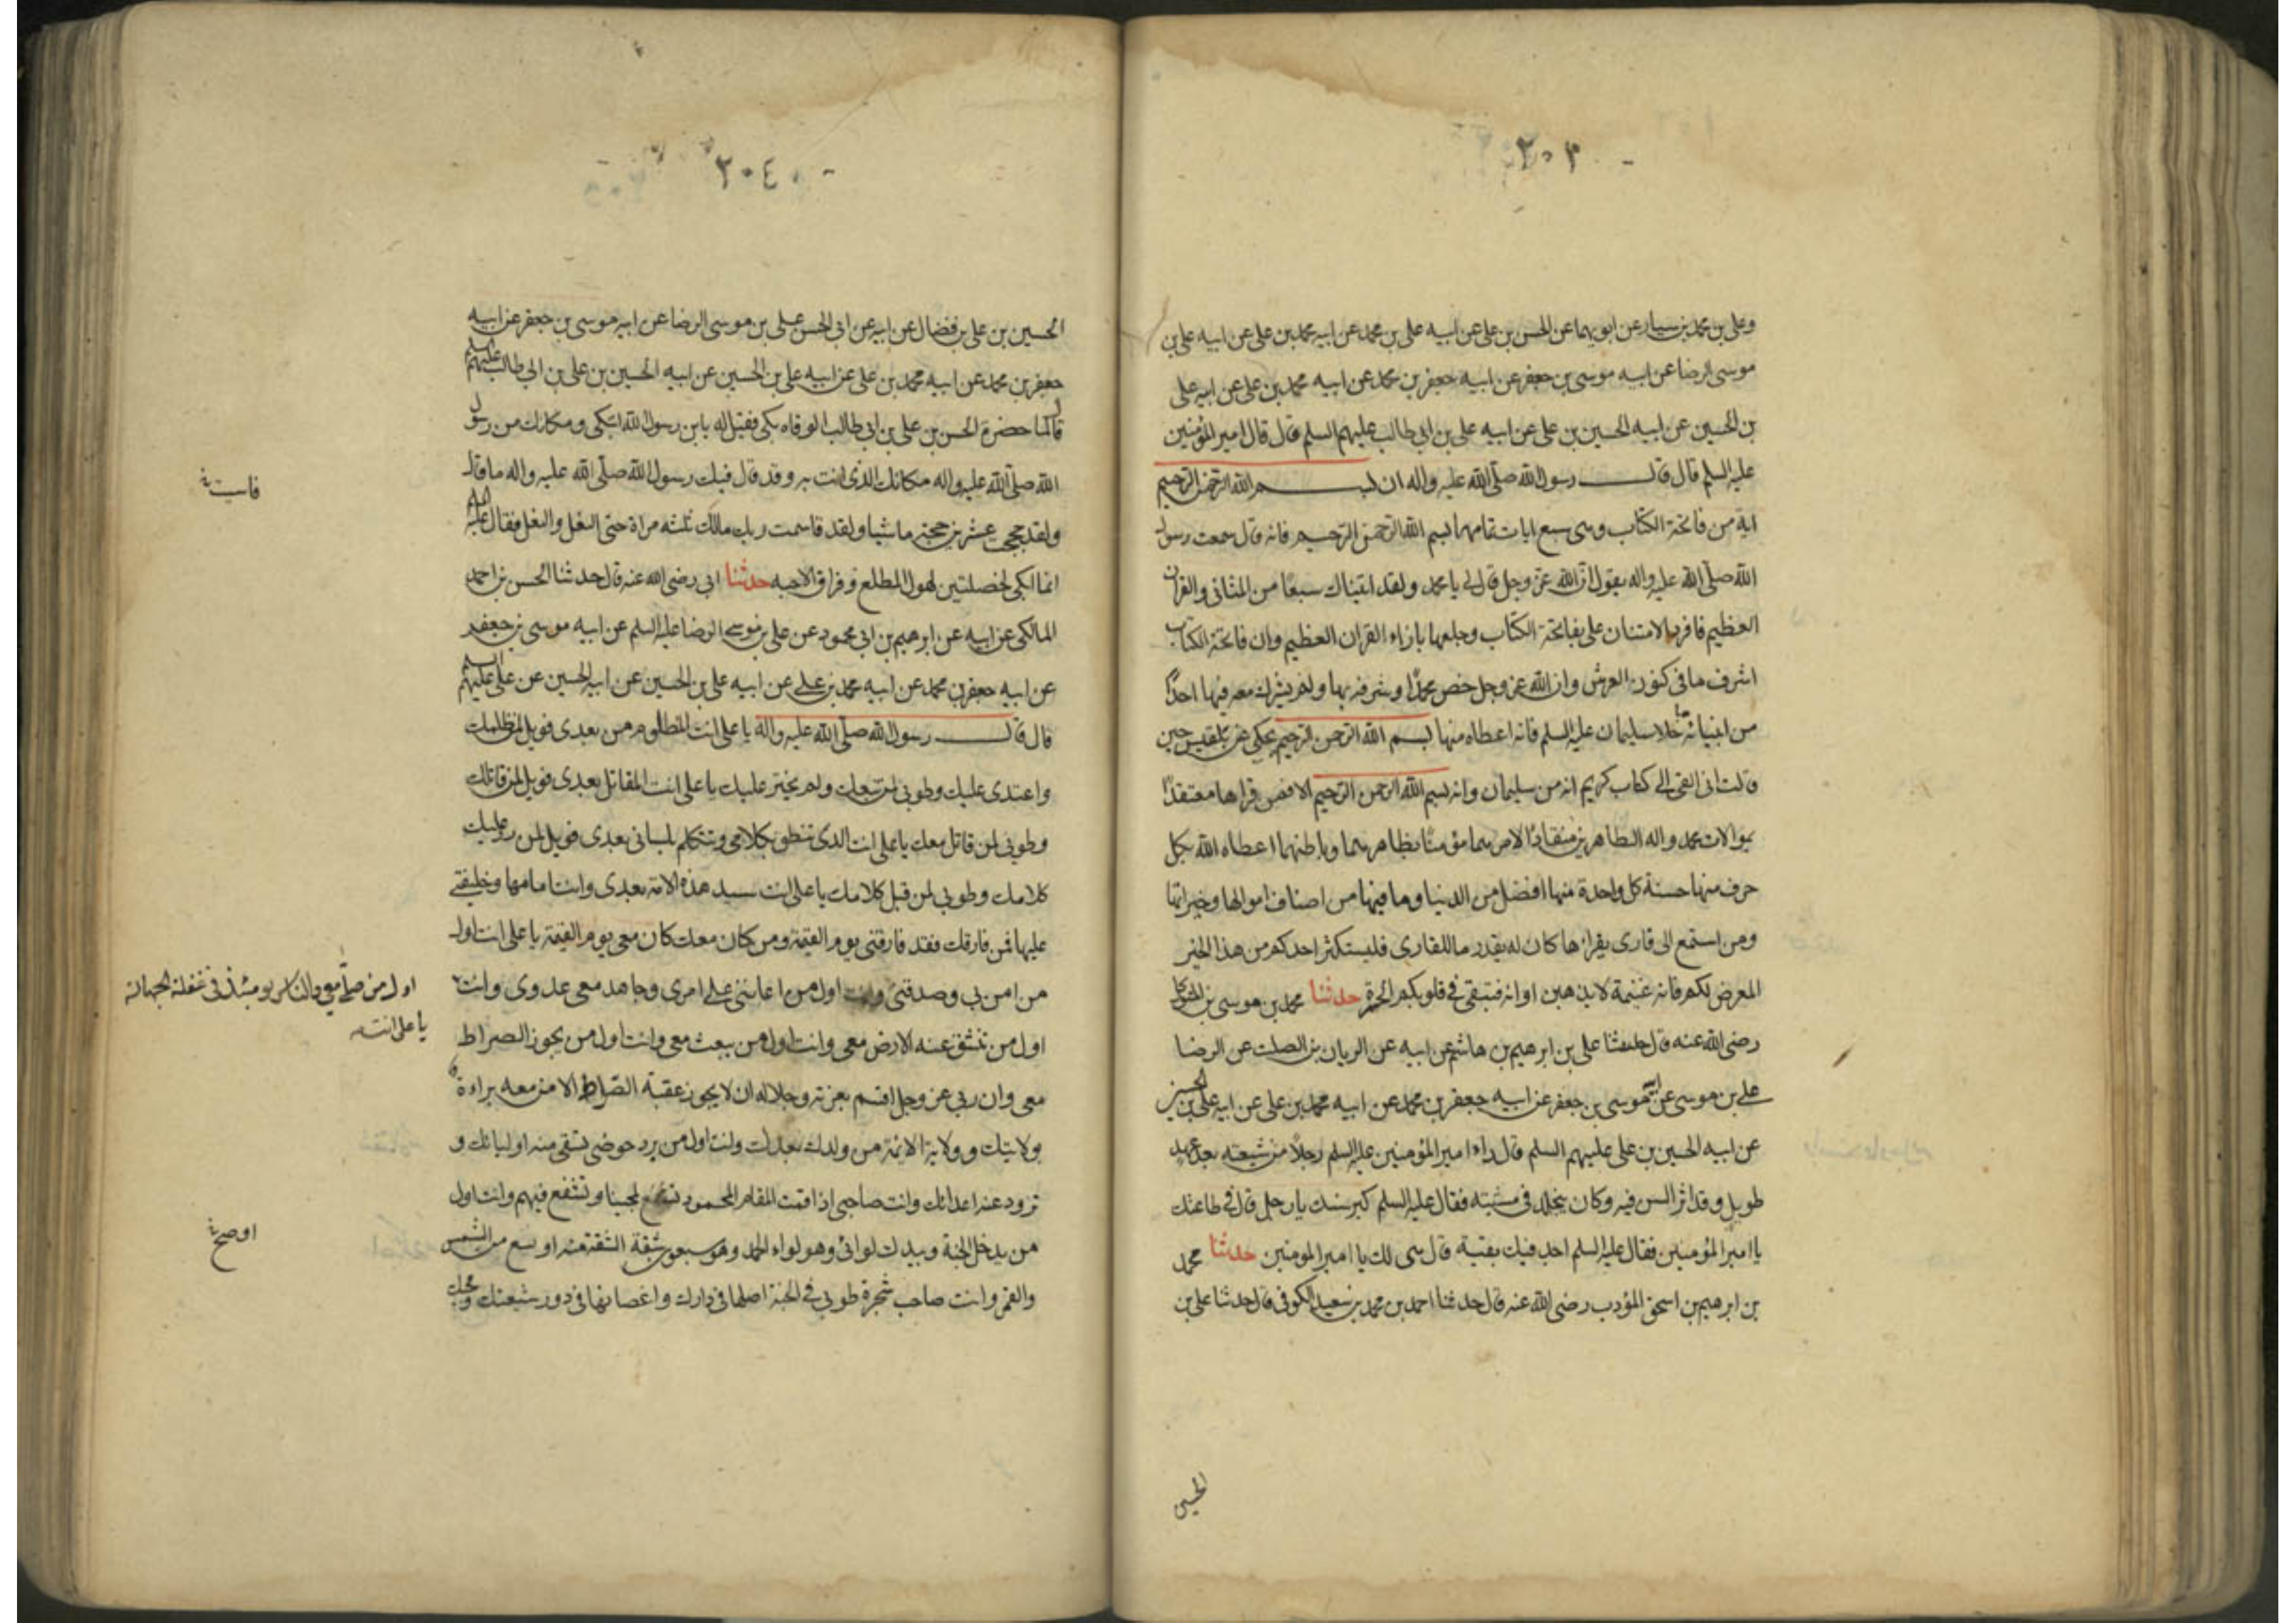 ٢٠٣
وعلى بن محمد بن سيار عن ابويهما عن الحسن بن على عن ابيه على بن محمد عن ابيه محمد بن على عن ابيه على بن
موسى الرضا عن ابيه موسى بن جعفر عن ابيه جعفر بن محمد عن ابيه محمد بن على عن ابيه على
بن الحسين عن ابيه الحسين بن على عن ابيه على بن ابى طالب عليهم السلم قال قال امير المؤمنين
عليه السلم قال قال رسول الله صلى الله عليه واله ان بسم الله الرحمن الرحيم
اية من فاتحة الكتاب وهى سبع ايات تمامها بسم الله الرحمن الرحيم فانه قال سمعت رسول
الله صلى الله عليه واله يقول ان الله عز وجل قال لى يا محمد ولقد اتيناك سبعا من المثانى والقران
العظيم فافرد الامتنان على بفاتحة الكتاب وجعلها بازاء القران العظيم وان فاتحة الكتاب
اشرف ما فى كنوز العرش وان الله عز وجل خص محمدا وشرفه بها ولم يشرك معه فيها احدا
من انبيائه ما خلا سليمان عليه السلم فانه اعطاه منها بسم الله الرحمن الرحيم يحكى عن بلقيس حين
قالت انى القى الى كتاب كريم انه من سليمان وانه بسم الله الرحمن الرحيم الا فمن قراها معتقدا
بموالات محمد واله الطاهرين منقادا لامرهما مؤمنا بظاهرهما وباطنهما اعطاه الله بكل
حرف منها حسنة كل واحدة منها افضل من الدنيا وما فيها من اصناف اموالها وخيراتها
ومن استمع الى قارى يقراها كان له بقدر ما للقارى فليستكثر احدكم من هذا الخير
المعرض لكم فانه غنيمة لا يذهبن اوانه فتبقى فى قلوبكم الحسرة حدثنا محمد بن موسى بن المتوكل
رضى الله عنه قال حدثنا على بن ابرهيم بن هاشم عن ابيه عن الريان بن الصلت عن الرضا
على بن موسى عن ابيه موسى بن جعفر عن ابيه جعفر بن محمد عن ابيه محمد بن على عن ابيه على بن الحسين
عن ابيه الحسين بن على عليهم السلم قال راء امير المؤمنين عليه السلم رجلا من شيعته بعد عهد
طويل وقد اثر السن فيه وكان يتجلد فى مشيته فقال عليه السلم كبر سنك يا رجل قال فى طاعتك
يا امير المؤمنين فقال عليه السلم اجد فيك بقية قال هى لك يا امير المومنين حدثنا محمد
بن ابرهيم بن اسحق المؤدب رضى الله عنه قال حدثنا احمد بن محمد بن سعيد الكوفى قال حدثنا على بن
الحسين
٢٠٤
الحسين بن على بن فضال عن ابيه عن ابى الحسن على بن موسى الرضا عن ابيه موسى بن جعفر عن ابيه
جعفر بن محمد عن ابيه محمد بن على عن ابيه على بن الحسين عن ابيه الحسين بن على بن ابى طالب عليهم السلم
قال لما حضرة الحسن بن على بن ابى طالب الوفاه بكى فقيل له يا بن رسول الله اتبكى ومكانك من رسول
الله صلى الله عليه واله مكانك الذى انت به وقد قال فيك رسول الله صلى الله عليه واله ما قال
ولقد حججت عشرين حجة ماشيا ولقد قاسمت ربك مالك ثلثه مراة حتى النعل والنعل فقال عليه السلم
انما ابكى لخصلتين لهول المطلع وفراق الاحبه حدثنا ابى رضى الله عنه قال حدثنا الحسن بن احمد
المالكى عن ابيه عن ابرهيم بن ابى محمود عن على بن موسى الرضا عليه السلم عن ابيه موسى بن جعفر
عن ابيه جعفر بن محمد عن ابيه محمد بن على عن ابيه على بن الحسين عن ابيه الحسين عن على عليهم السلم
قال قال رسول الله صلى الله عليه واله يا على انت المظلوم من بعدى فويل لمن ظلمك
واعتدى عليك وطوبى لمن تبعك ولم يختر عليك يا على انت المقاتل بعدى فويل لمن قاتلك
وطوبى لمن قاتل معك يا على انت الذى تنطق بكلامى وتتكلم بلسانى بعدى فويل لمن رد عليك
كلامك وطوبى لمن قبل كلامك يا على انت سيد هذه الامة بعدى وانت امامها وخليفتى
عليها فمن فارقك فقد فارقنى يوم القيمة ومن كان معك كان معى يوم القيمة يا على انت اول
من امن بى وصدقنى وانت اول من اعاننى على امرى وجاهد معى عدوى وانت
اول من تنشق عنه الارض معى وانت اول من يبعث معى وانت اول من يجوز الصراط
معى وان ربى عز وجل اقسم بعزته وجلاله ان لا يجوز عقبة الصراط الا من معه براءة
بولايتك وولاية الائمة من ولدك بعدك وانت اول من يرد حوضى تسقى منه اوليائك و
تزود عنه اعدائك وانت صاحبى اذا قمت المقام المحمود تشفع لمحبينا وتشفع فيهم وانت اول
من يدخل الجنة وبيدك لوائى وهو لواء الحمد وهو سبعون شقة الشقة منه اوسع من الشمس
والقمر وانت صاحب شجرة طوبى فى الجنة اصلها فى دارك واغصانها فى دور شيعتك ومحبيك
اول من صلى معى والناس يومئذ فى غفلة الجهالة
يا على انت